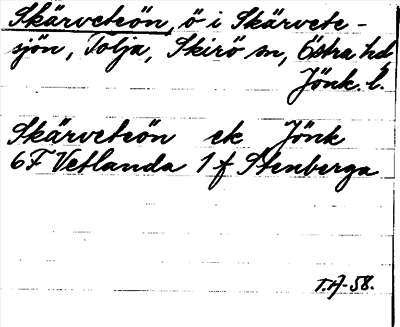 Skärveteön, ö i Skärvete-
sjön, Tolja, Skirö sn, Östra hd,
Jönk. l.
Skärveteön ek Jönk
6F Vetlanda 1 f Stenberga
T.A-58.